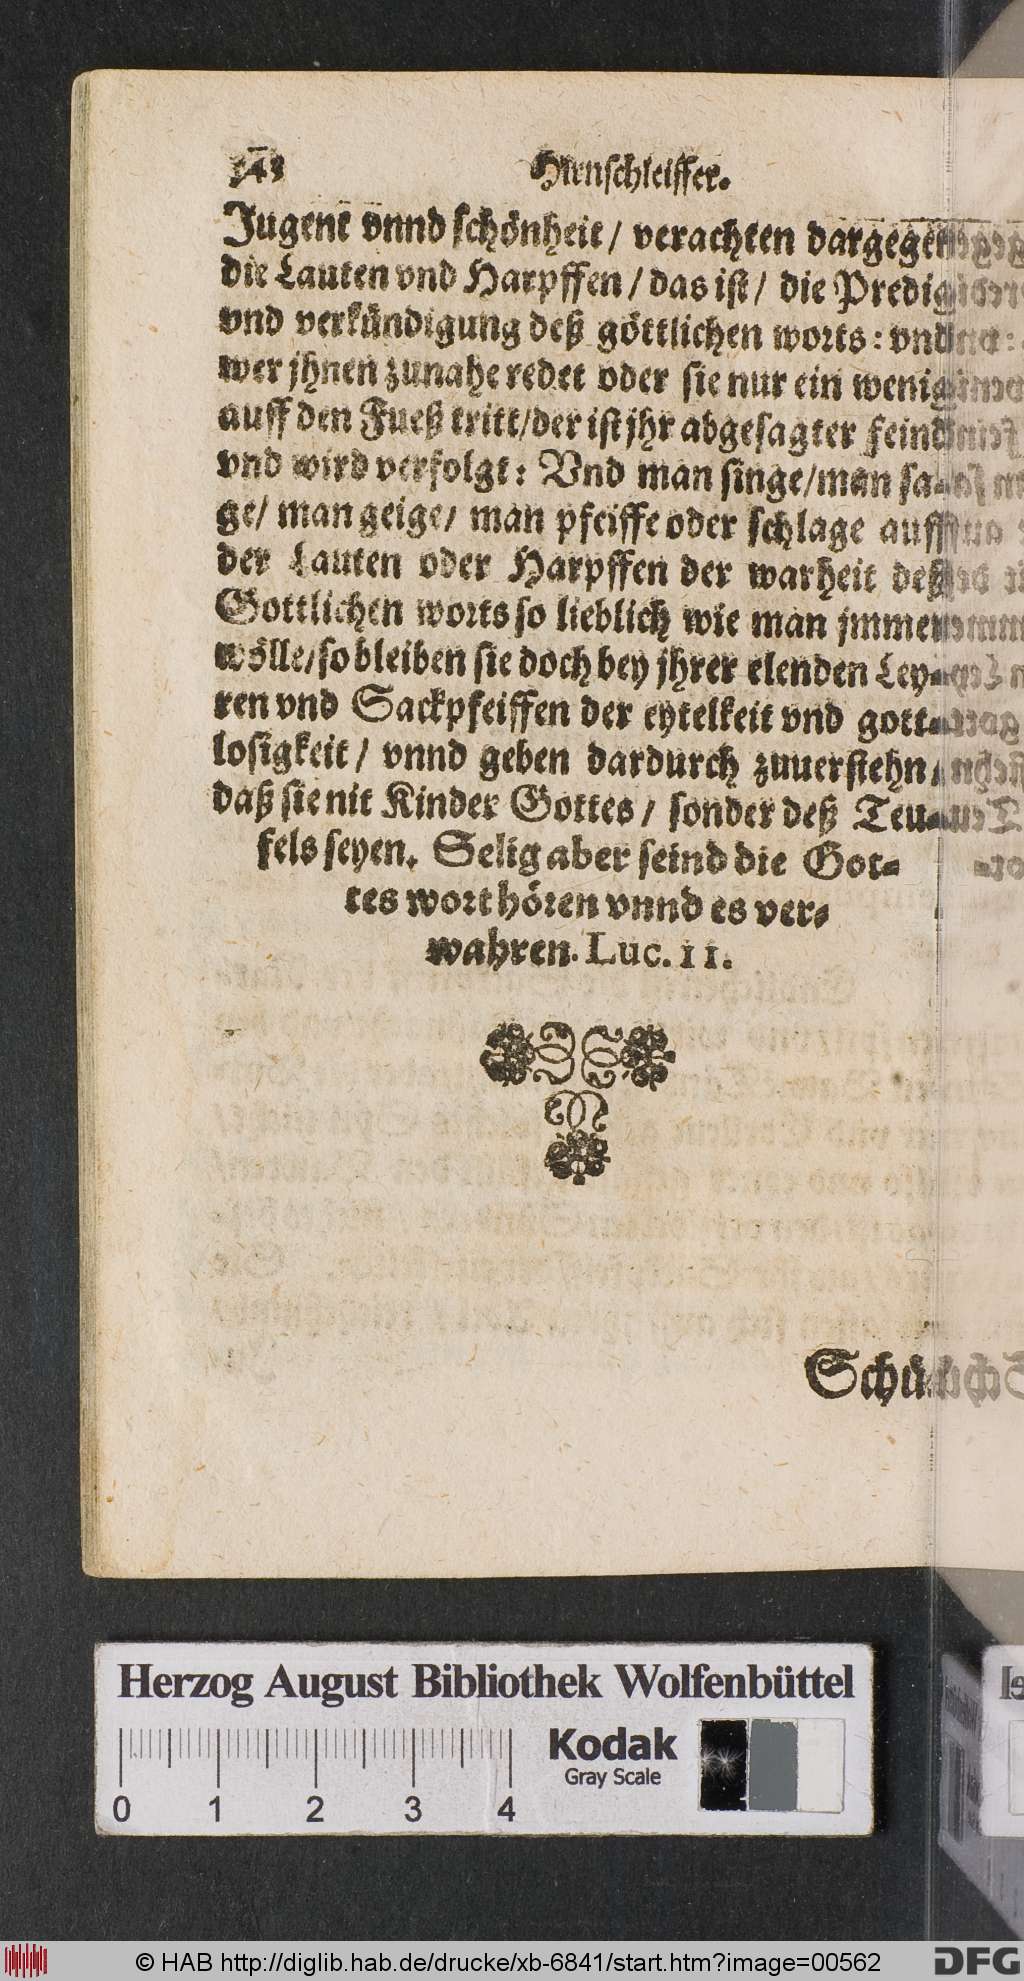 Hirnschleiffer.
Jugent vnnd schönheit / verachten dargegen
die Lauten vnd Harpffen / das ist / die Predig
vnd verkündigung deß göttlichen worts: vnd
wer jhnen zunahe redet oder sie nur ein wenig
auff den Fueß tritt / der ist jhr abgesagter feind
vnd wird verfolgt: Vnd man singe / man sa-
ge / man geige / man pfeiffe oder schlage auff
der Lauten oder Harpffen der warheit deß
Gottlichen worts so lieblich wie man jmmer
wölle / so bleiben sie doch bey jhrer elenden Ley-
ren vnd Sackpfeiffen der eytelkeit vnd gott-
losigkeit / vnnd geben dardurch zuuerstehn /
daß sie nit Kinder Gottes / sonder deß Teu-
fels seyen. Selig aber seind die Got-
tes wort hören vnnd es ver-
wahren. Luc. 11.
Schü-
Herzog August Bibliothek Wolfenbüttel
Kodak
Gray Scale
0 1 2 3 4
© HAB http://diglib.hab.de/drucke/xb-6841/start.htm?image=00562
DFG